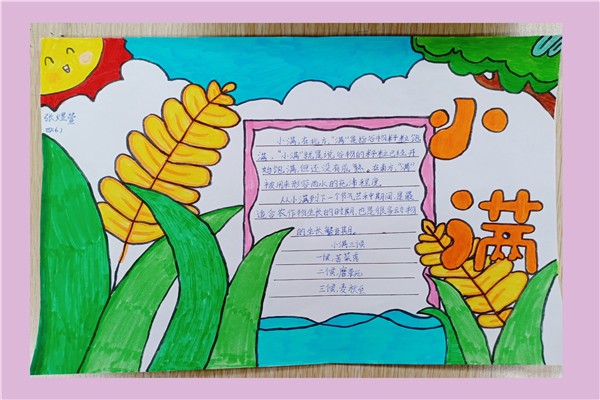 小满
小满,在北方,“满”是指谷物籽粒饱
满,“小满”就是说谷物的籽粒已经开
始饱满,但还没有成熟。在南方,“满”
被用来形容雨水的充沛程度。
从小满到下一个节气芒种期间,是最
适合农作物生长的时期,也是很多动物
的生长,繁育其月。
小满三候
一候,苦菜秀
二候,靡草死
三候,麦秋至